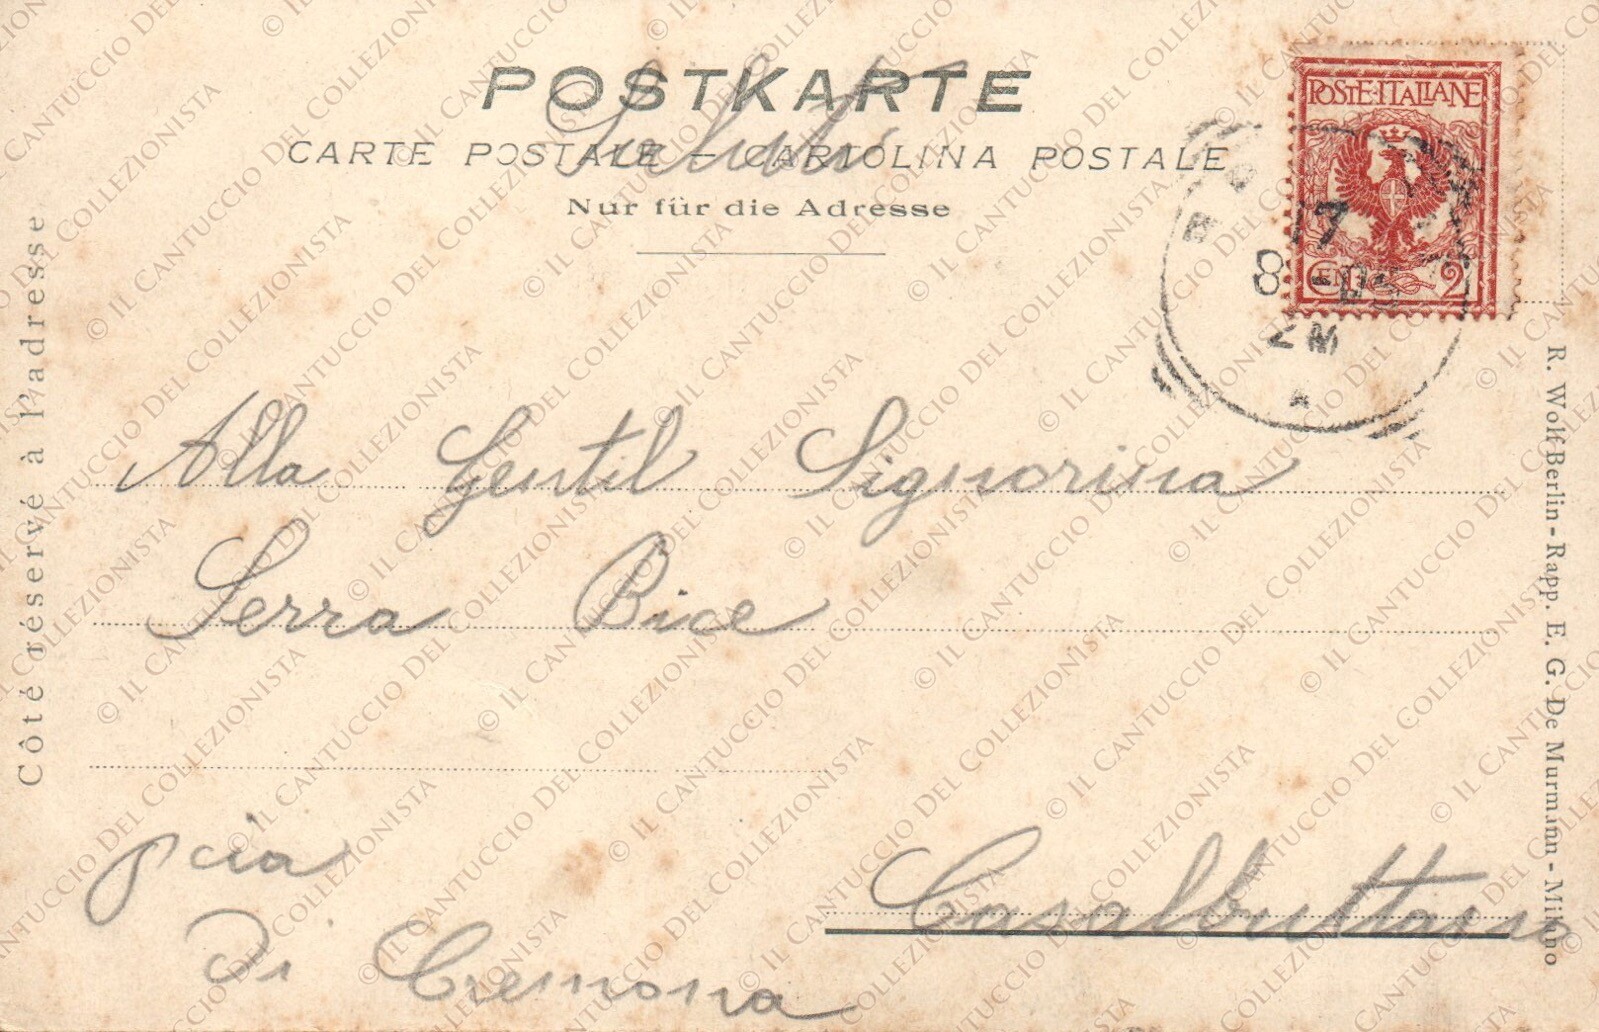 POSTKARTE
Saluti
CARTE POSTALE – CARTOLINA POSTALE
Nur für die Adresse
POSTE·ITALIANE
CENT 2
17
8 - 05
2 M
Côté réservé à l'adresse
Alla Gentil Signorina
Serra Bice
pcia
Di Cremona
Casalbuttano
R. Wolf Berlin - Rapp. E. G. De Murmann - Milano
© IL CANTUCCIO DEL COLLEZIONISTA